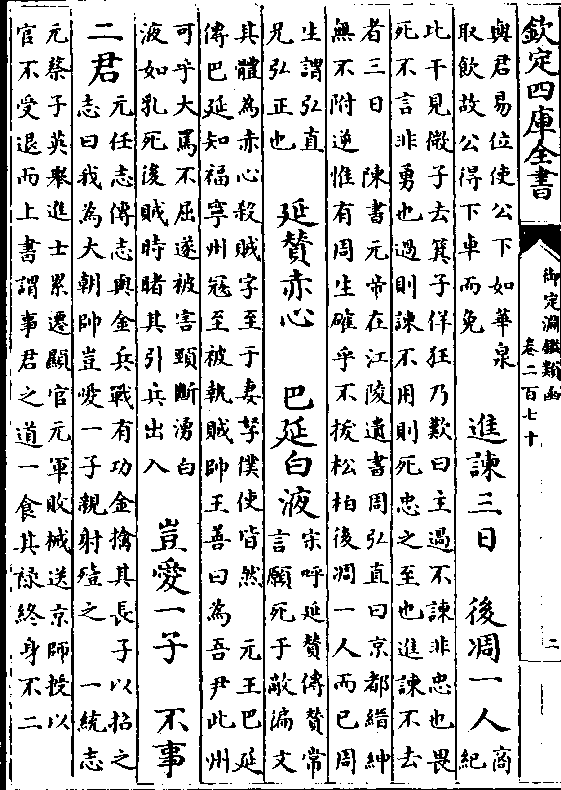 欽定四庫全書
御定淵鑑類函
卷二百七十
二
與君易位使公下如華泉
取飲故公得下車而免
進諫三日 後凋一人
商
紀
比干見微子去箕子佯狂乃歎曰主過不諫非忠也畏
死不言非勇也過則諫不用則死忠之至也進諫不去
者三日 陳書元帝在江陵遺書周弘直曰京都縉紳
無不附逆惟有周生確乎不拔松柏後凋一人而已周
生謂弘直
兄弘正也
延贊赤心 巴延白液
宋呼延贊傳贊常
言願死于敵徧文
其體為赤心殺賊字至于妻孥僕使皆然 元王巴延
傳巴延知福寧州冦至被執賊帥王善曰為吾尹此州
可乎大罵不屈遂被害頸斷湧白
液如乳死後賊時睹其引兵出入
豈愛一子 不事
二君
元任志傳志與金兵戰有功金擒其長子以招之
志曰我為大朝帥豈愛一子親射殪之 一統志
元蔡子英舉進士累遷顯官元軍敗械送京師授以
官不受退而上書謂事君之道一食其祿終身不二